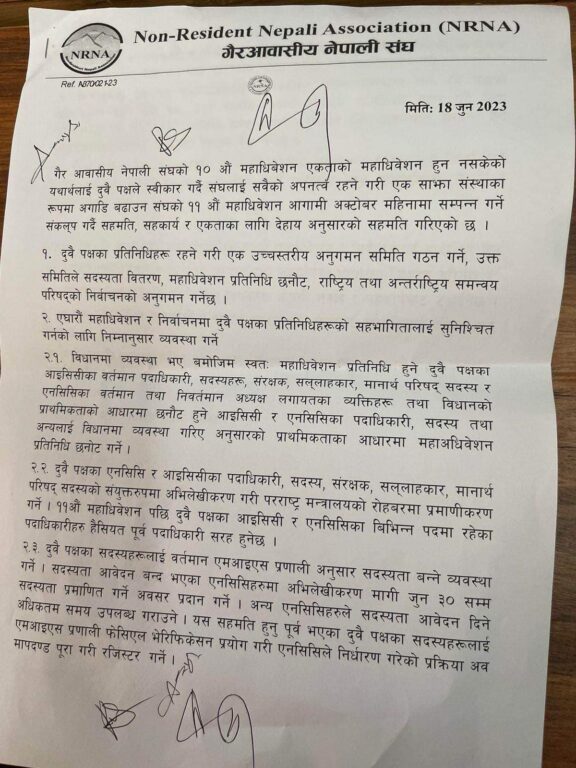 Non-Resident Nepali Association (NRNA)
गैरआवासीय नेपाली संघ
NRNA
Ref. N870/021-23
मिति: 18 जुन 2023
गैर आवासीय नेपाली संघको १० औं महाधिबेशन एकताको महाधिवेशन हुन नसकेको
यथार्थलाई दुवै पक्षले स्वीकार गर्दै संघलाई सवैको अपनत्व रहने गरी एक साझा संस्थाका
रूपमा अगाडि बढाउन संघको ११ औं महाधिवेशन आगामी अक्टोबर महिनामा सम्पन्न गर्ने
संकल्प गर्दै सहमति, सहकार्य र एकताका लागि देहाय अनुसारको सहमति गरिएको छ ।
१. दुवै पक्षका प्रतिनिधिहरू रहने गरी एक उच्चस्तरीय अनुगमन समिति गठन गर्ने, उक्त
समितिले सदस्यता वितरण, महाधिवेशन प्रतिनिधि छनौट, राष्ट्रिय तथा अन्तर्राष्ट्रिय समन्वय
परिषद्को निर्वाचनको अनुगमन गर्नेछ ।
२. एघारौं महाधिवेशन र निर्वाचनमा दुवै पक्षका प्रतिनिधिहरूको सहभागितालाई सुनिश्चित
गर्नको लागि निम्नानुसार व्यवस्था गर्ने
२.१. विधानमा व्यवस्था भए बमोजिम स्वतः महाधिवेशन प्रतिनिधि हुने दुवै पक्षका
आइसिसीका वर्तमान पदाधिकारी, सदस्यहरू, संरक्षक, सल्लाहकार, मानार्थ परिषद् सदस्य र
एनसिसिका वर्तमान तथा निवर्तमान अध्यक्ष लगायतका व्यक्तिहरू तथा विधानको
प्राथमिकताको आधारमा छनौट हुने आइसिसी र एनसिसिका पदाधिकारी, सदस्य तथा
अन्यलाई विधानमा व्यवस्था गरिए अनुसारको प्राथमिकताका आधारमा महाअधिवेशन
प्रतिनिधि छनोट गर्ने ।
२.२. दुवै पक्षका एनसिसि र आइसिसीका पदाधिकारी, सदस्य, संरक्षक, सल्लाहकार, मानार्थ
परिषद् सदस्यको संयुक्तरुपमा अभिलेखीकरण गरी परराष्ट्र मन्त्रालयको रोहबरमा प्रमाणीकरण
गर्ने । ११औं महाधिवेशन पछि दुवै पक्षका आइसिसी र एनसिसिका बिभिन्न पदमा रहेका
पदाधिकारीहरु हैसियत पूर्व पदाधिकारी सरह हुनेछ ।
२.३. दुवै पक्षका सदस्यहरूलाई वर्तमान एमआइएस प्रणाली अनुसार सदस्यता बन्ने व्यवस्था
गर्ने । सदस्यता आवेदन बन्द भएका एनसिसिहरुमा अभिलेखीकरण मागी जुन ३० सम्म
सदस्यता प्रमाणित गर्ने अवसर प्रदान गर्ने । अन्य एनसिसिहरुले सदस्यता आवेदन दिने
अधिकतम समय उपलब्ध गराउने । यस सहमति हुनु पूर्व भएका दुवै पक्षका सदस्यहरूलाई
एमआइएस प्रणाली फेसिएल भेरिफिकेसन प्रयोग गरी एनसिसिले निर्धारण गरेको प्रक्रिया अव
मापदण्ड पूरा गरी रजिस्टर गर्ने ।